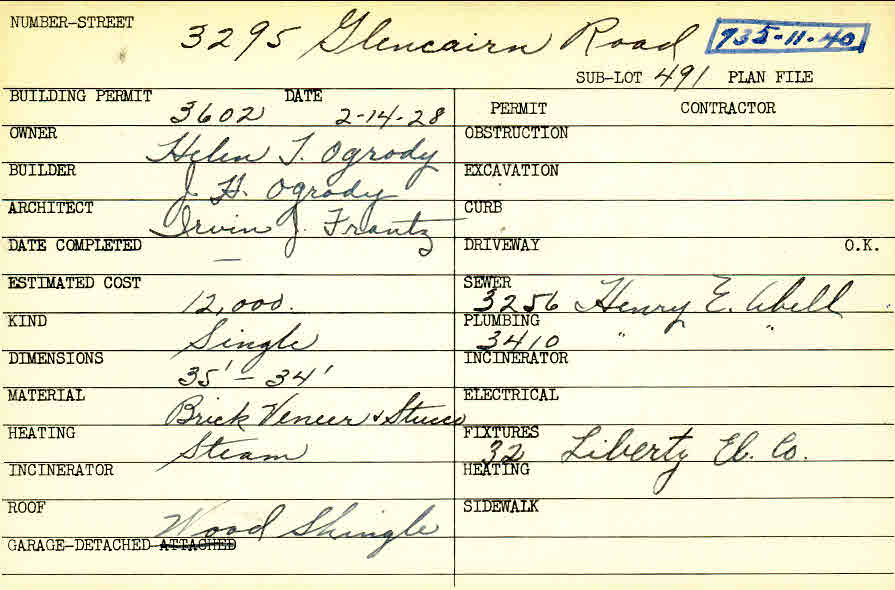 NUMBER-STREET 3295 Glencairn Road 735-11-40
SUB-LOT 491 PLAN FILE
BUILDING PERMIT 3602 DATE 2-14-28
OWNER Helen T. Ogrody
BUILDER J. H. Ogrody
ARCHITECT Irvin J. Frantz
DATE COMPLETED —
ESTIMATED COST 12,000.
KIND Single
DIMENSIONS 35' - 34'
MATERIAL Brick Veneer & Stucco
HEATING Steam
INCINERATOR
ROOF Wood Shingle
GARAGE-DETACHED ATTACHED
PERMIT CONTRACTOR
OBSTRUCTION
EXCAVATION
CURB
DRIVEWAY O.K.
SEWER 3256 Henry E. Abell
PLUMBING 3410 " "
INCINERATOR
ELECTRICAL
FIXTURES 32 Liberty El. Co.
HEATING
SIDEWALK